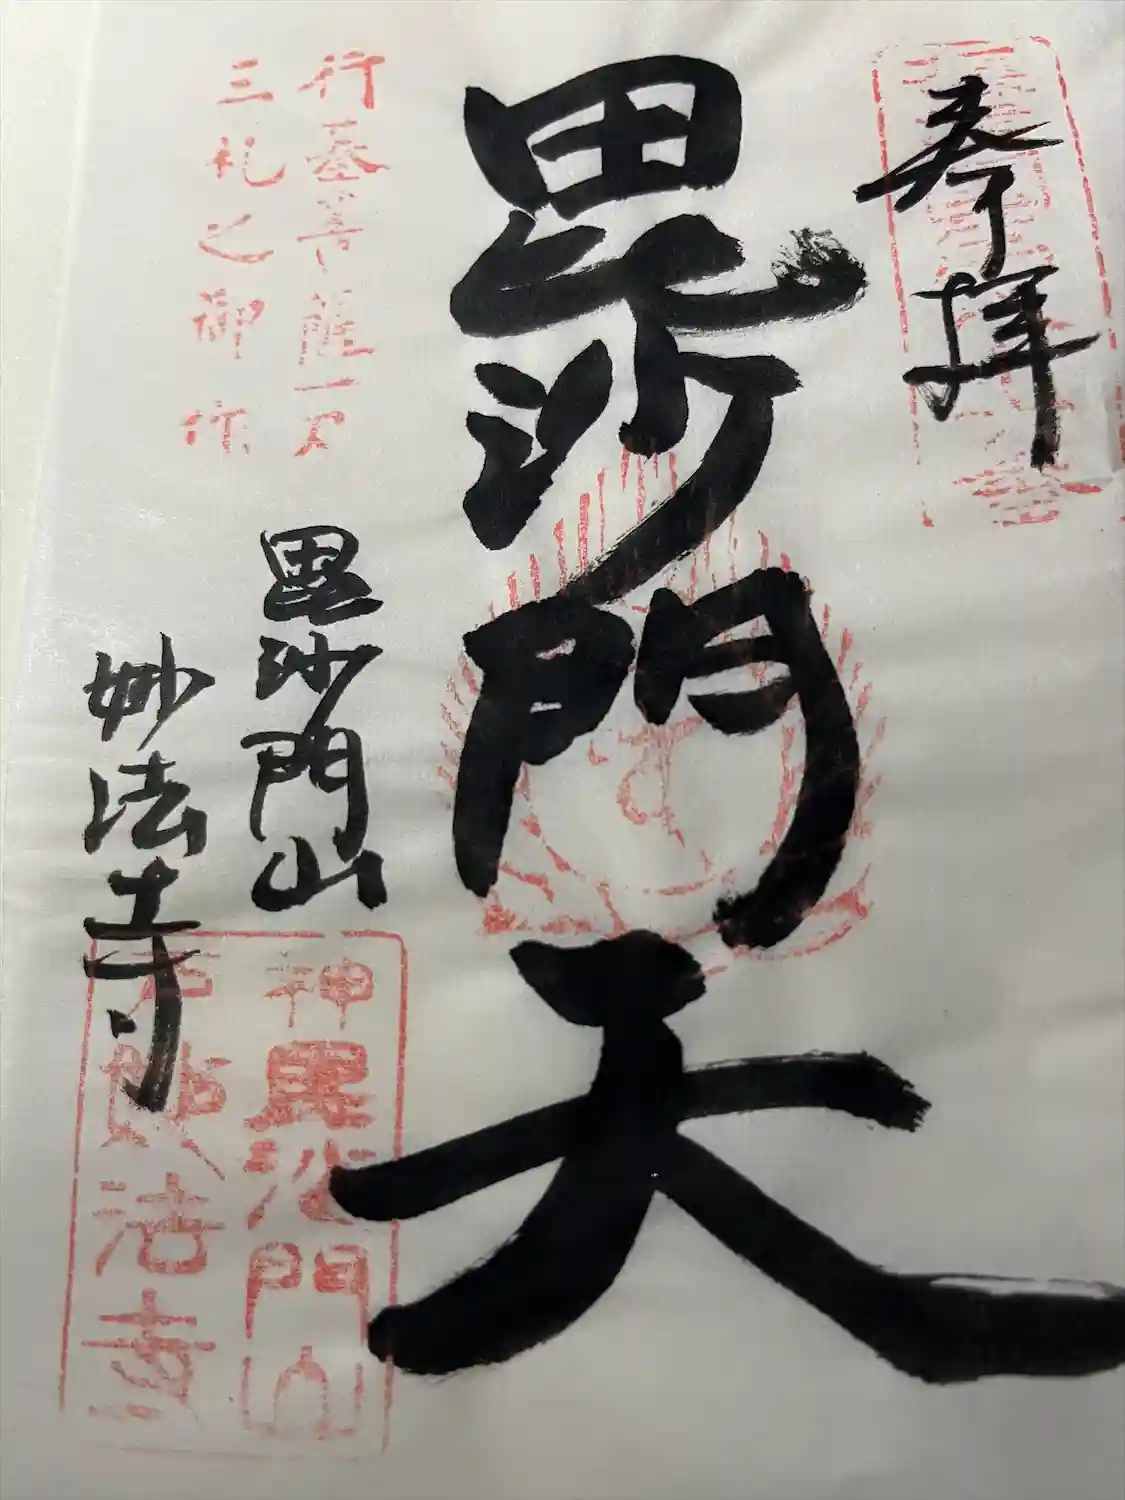 奉拝
毘沙門天
行基菩薩一刀
三礼之御作
毘沙門山
妙法寺
神毘沙門山
妙法寺